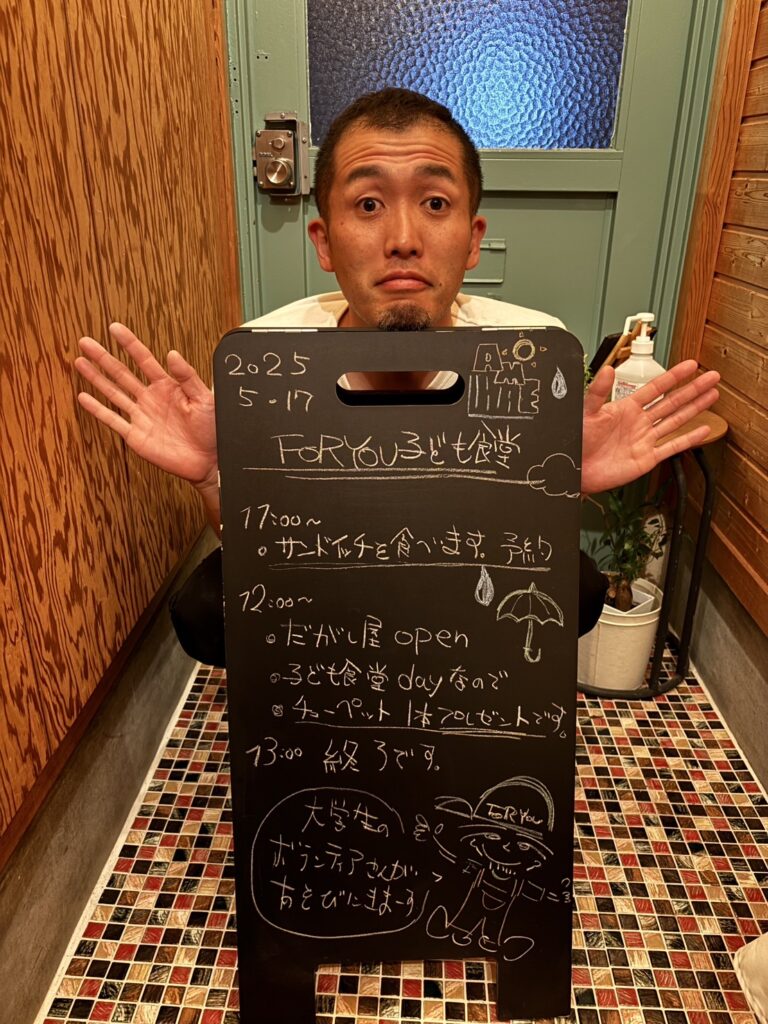 2025
5-17
AME
FOR YOU子ども食堂
11:00〜
・サンドイッチを食べます。予約
12:00〜
・だがし屋 open
・子ども食堂dayなので
・チューペット 1本プレゼントです。
13:00 終了です。
FOR YOU
大学生の
ボランティアさんが
あそびにきまーす